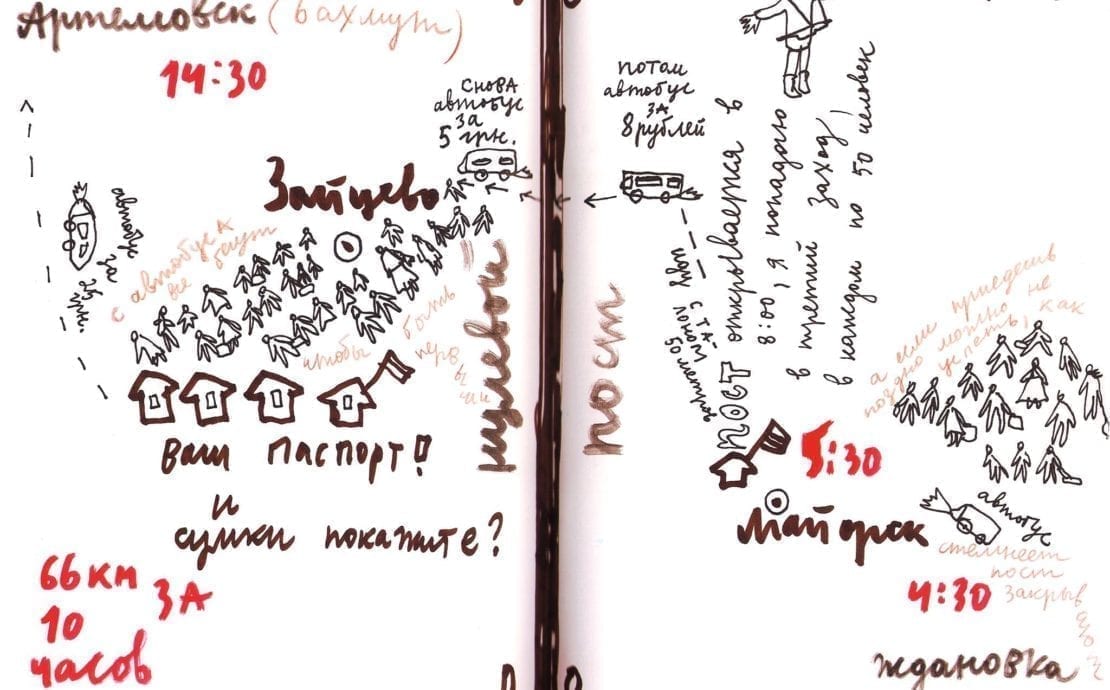 Артемовск (Бахмут)
14:30
снова
автобус
за
5 грн.
Зайцево
автобус
с автобуса
все бегут
чтобы
быть
перв
ыми
Ваш паспорт!
и
сумки покажите?
66 км
за
10
часов
нулевой
пост
потом
автобус
за
8 рублей
иду
с та-
50 метров
пост открывается в
8:00, я попадаю
в третий заход,
в каждом по 50 человек
5:30
Майорск
а если приедешь
поздно можно не
успеть, как
автобус
стемнеет
пост
закрыв
4:30
Ждановка